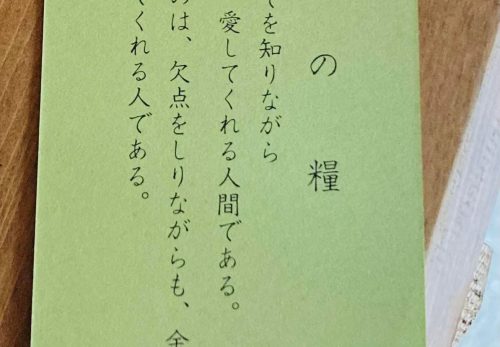 の糧
てを知りながら
愛してくれる人間である。
のは、欠点をしりながらも、全
てくれる人である。